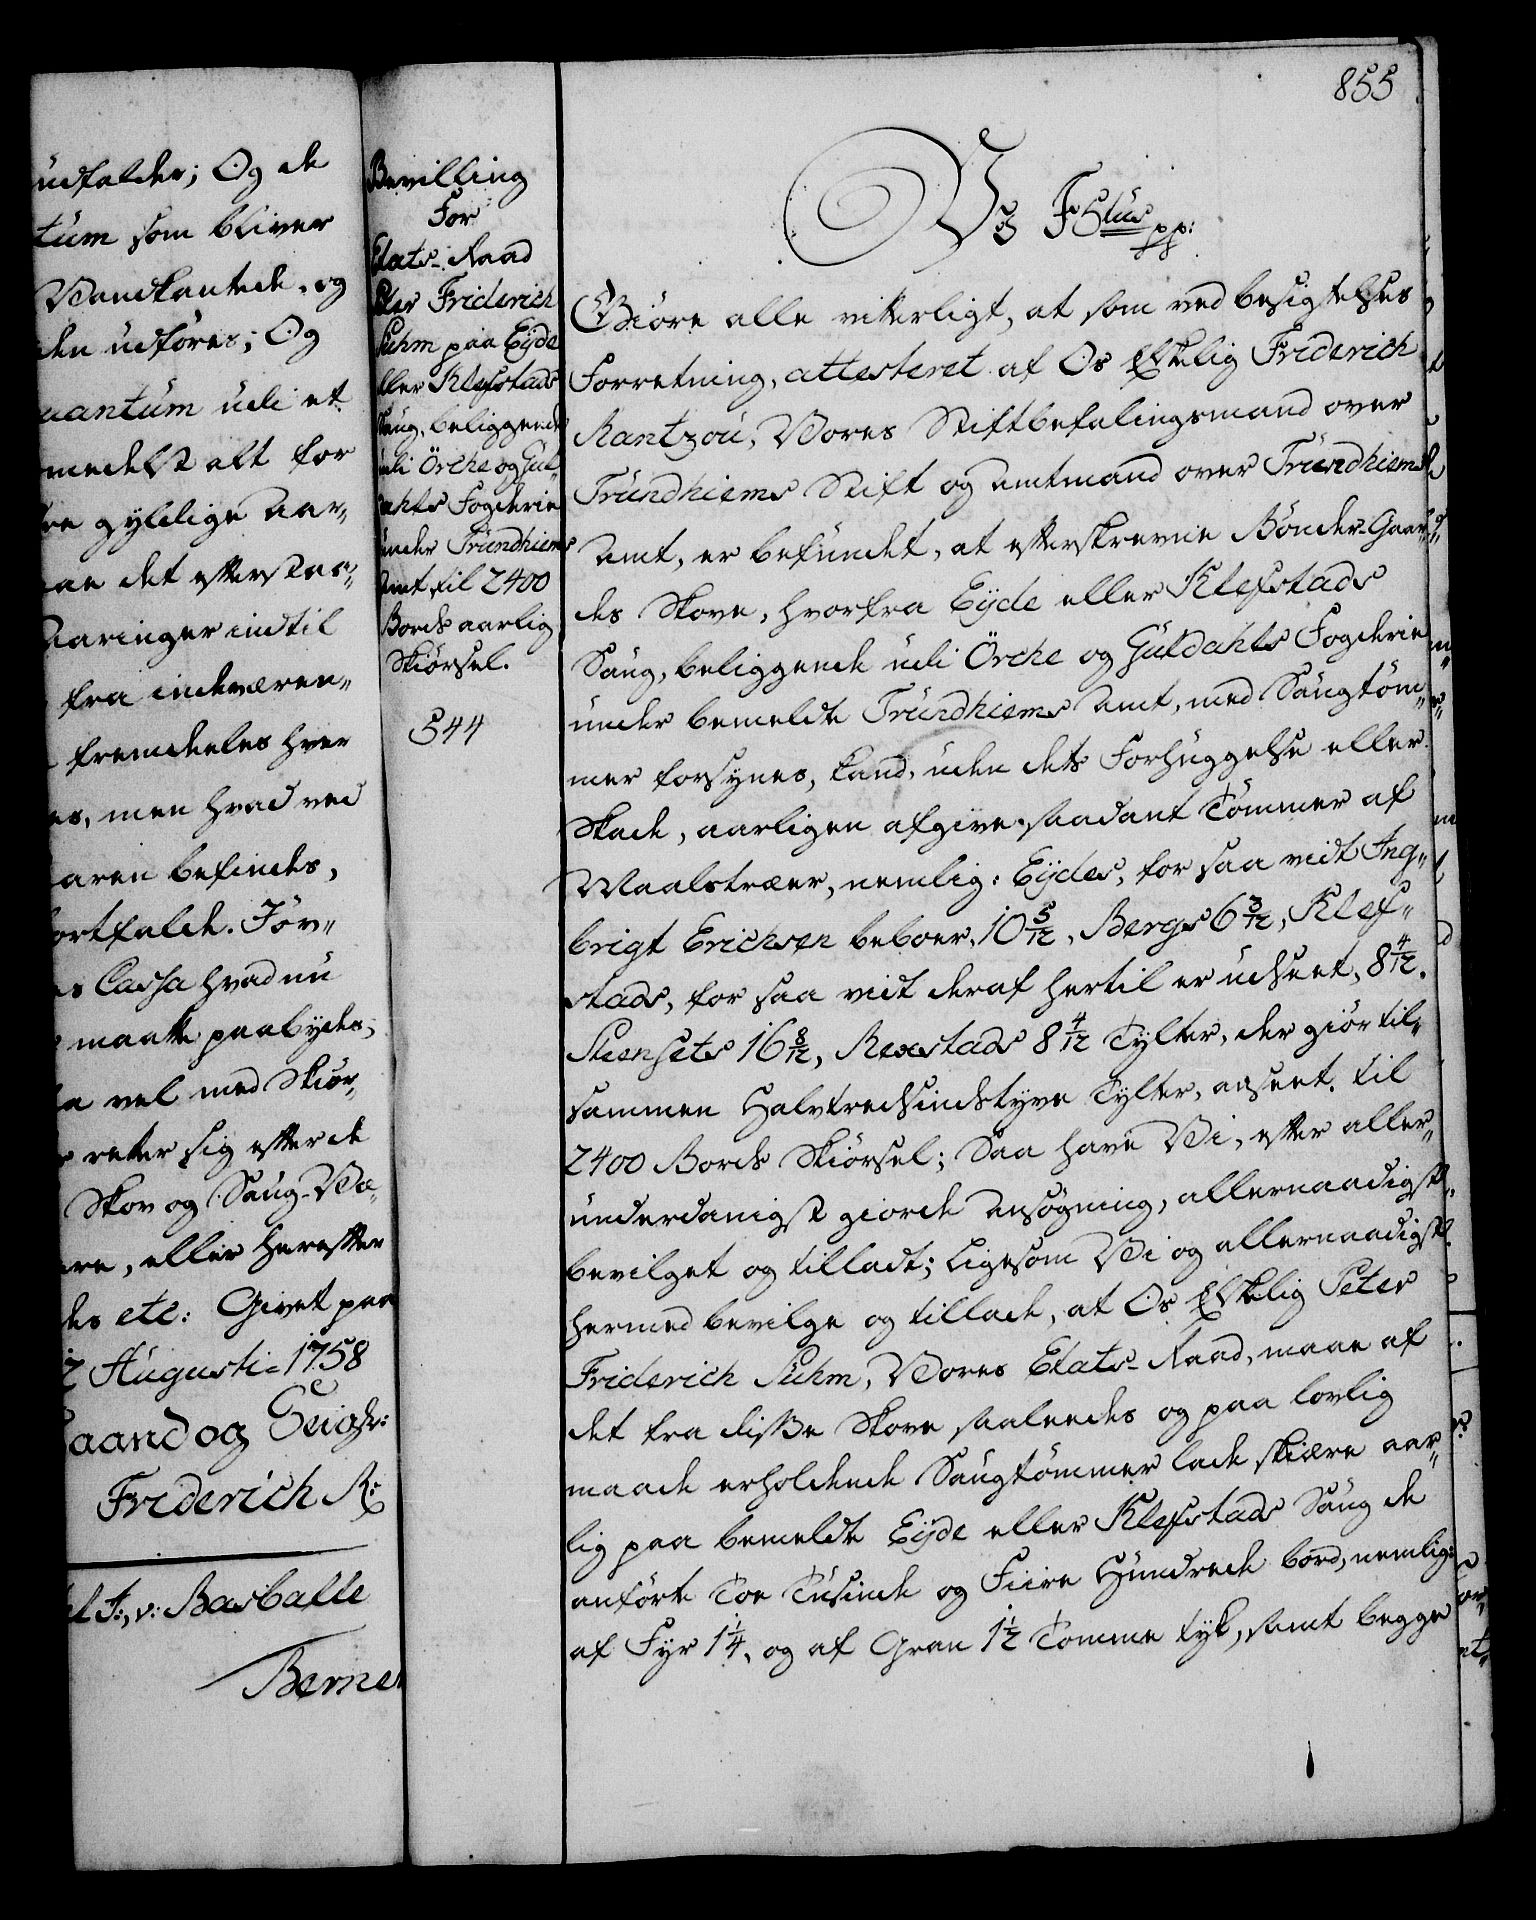 855
udfalder; Og de
tum som bliver
Vandkantede, og
den udføres; Og
uantum udi et
medelst alt for
re gyldige Aar„
aae det efterstaa„
Aaringer indtil
fra indeværen„
fremdeeles hver
es, men hvad ved
aren befindes,
ortfalde. Iøv„
s Cassa hvad nu
maatte paabydes,
a vel med Skiør„
retter sig efter de
Skov og Saug-Væ„
ere, eller herefter
des etc: Givet paa
Augusti 1758
aand og Seigl:
Friderich R:
I: v: Barballe
Berner
Bevilling
For
Etats-Raad
Peter Friderich
Suhm paa Eyde
eller Klefstads
Saug, beliggende
udi Örche og Gul„
dahls Fogderie
under Trundhiems
Amt til 2400
Bords aarlig
Skiørsel.
544
Vj F 5tus pp:
Giøre alle vitterligt, at som ved besigtelses
Forretning, attesteret af Os Elskelig Friderich
Rantzou, Vores Stiftbefalingsmand over
Trundhiems Stift og Amtmand over Trundhiems
Amt, er befundet, at efterskrevne Bønder-Gaar„
des Skove, hvorfra Eyde eller Klefstads
Saug, beliggende udi Örche og Guldahls Fogderie
under bemeldte Trundhiems Amt, med Saugtøm„
mer forsynes, kand, uden dets Forhuggelse eller
Skade, aarligen afgive saadant Tømmer af
Maalstræer, nemlig: Eydes, for saa vidt Ing„
brigt Erichsen beboer, 10 5/12, Bergs 6 3/12, Klef„
stads, for saa vidt deraf hertil er udseet, 8 4/12,
Steensets 16 8/12, Rexstads 8 4/12 Tylter, der giør til„
sammen Halvtredsindstyve Tylter, anseet til
2400 Bords Skiørsel; Saa have Vi, efter aller„
underdanigst giorde Ansøgning, allernaadigst
bevilget og tilladt; Ligesom Vi og allernaadigst
hermed bevilge og tillade, at Os Elskelig Peter
Friderich Suhm, Vores Etats-Raad, maae af
det fra disse Skove saaledes og paa lovlig
maade erholdende Saugtømmer lade skiære aar„
lig paa bemeldte Eyde eller Klefstads Saug de
anførte Toe Tusinde og Fiire Hundrede bord, nemlig:
af Fyr 1 1/4, og af Gran 1 1/2 Tomme tyk, samt begge